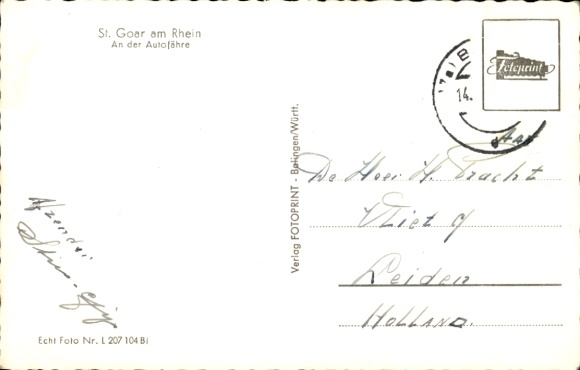 St. Goar am Rhein
An der Autofähre
Fotoprint
14.
Aan
De Heer H. Tracht
Vliet 9
Leiden
HOLLAND.
Verlag FOTOPRINT - Balingen/Württ.
Afzender
Echt Foto Nr. L 207 104 Bl